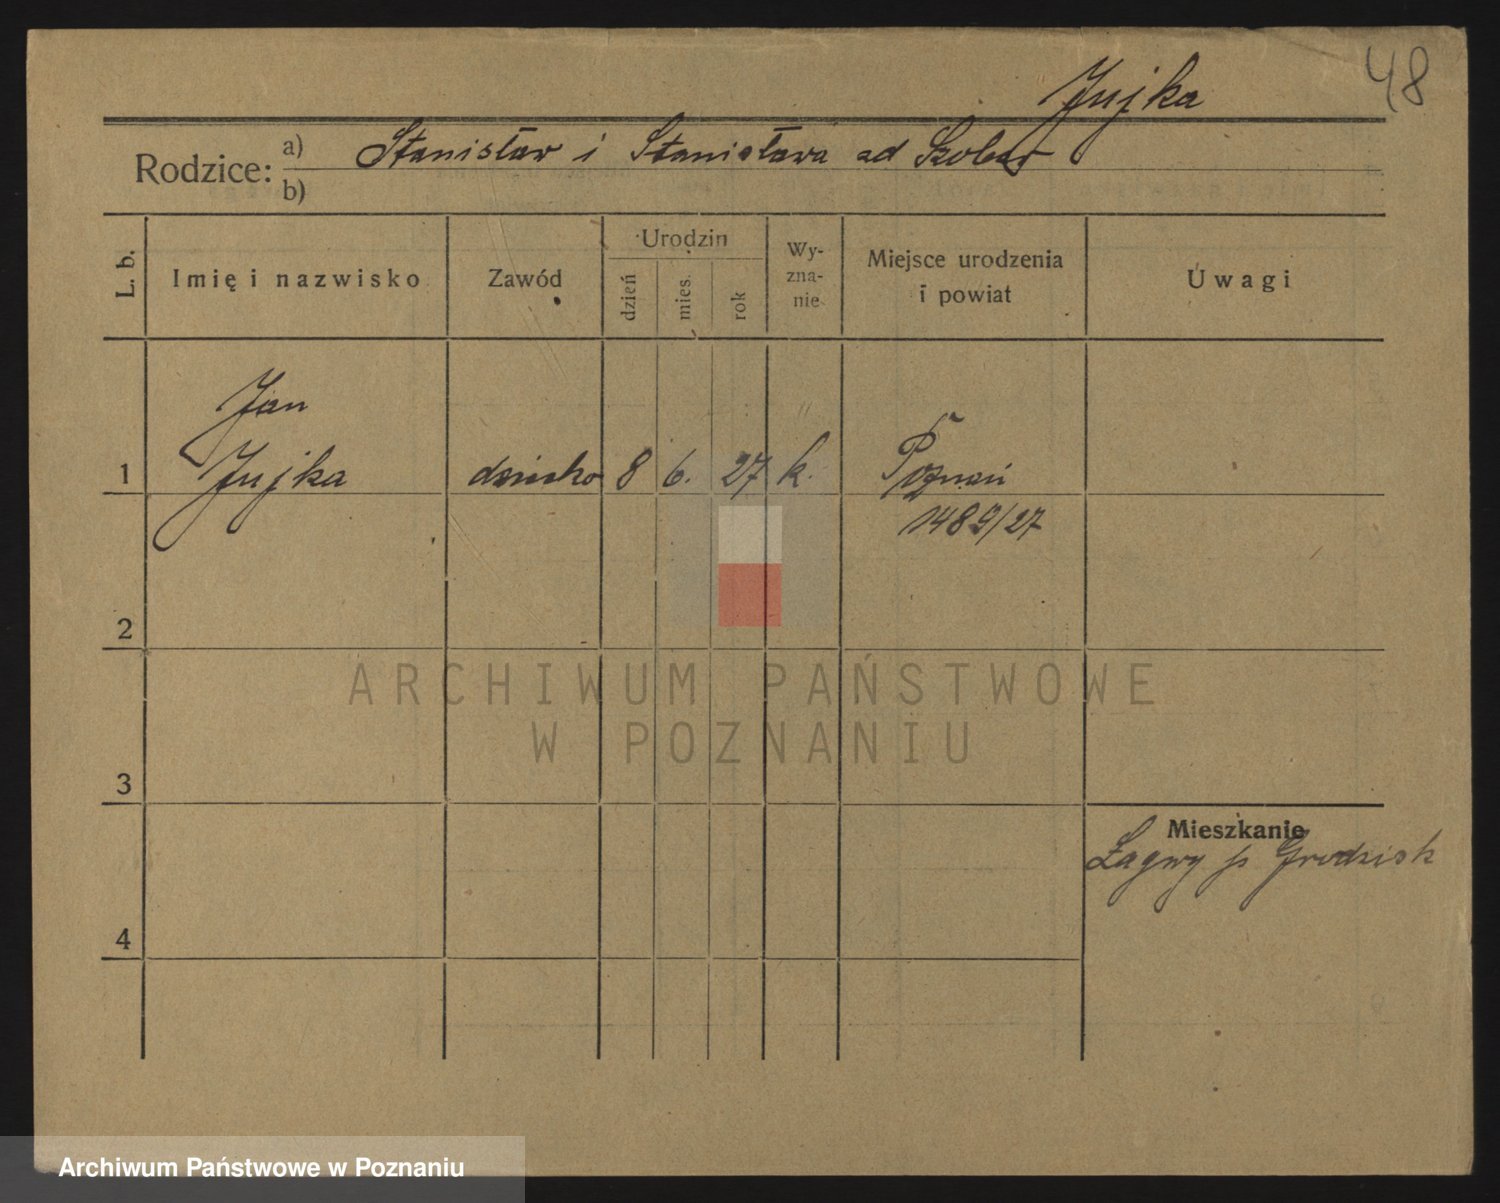 Jujka
48
Rodzice: a) Stanisław i Stanisława ad
b)
L. b.
Imię i nazwisko
Zawód
Urodzin
dzień
mies.
rok
Wy-
zna-
nie
Miejsce urodzenia
i powiat
Uwagi
Jan
1 Jujka dziecko 8 6. 27 k. Poznań
1489/27
2
3
Mieszkanie
Łagwy p Grodzisk
4
ARCHIWUM PAŃSTWOWE
W POZNANIU
Archiwum Państwowe w Poznaniu